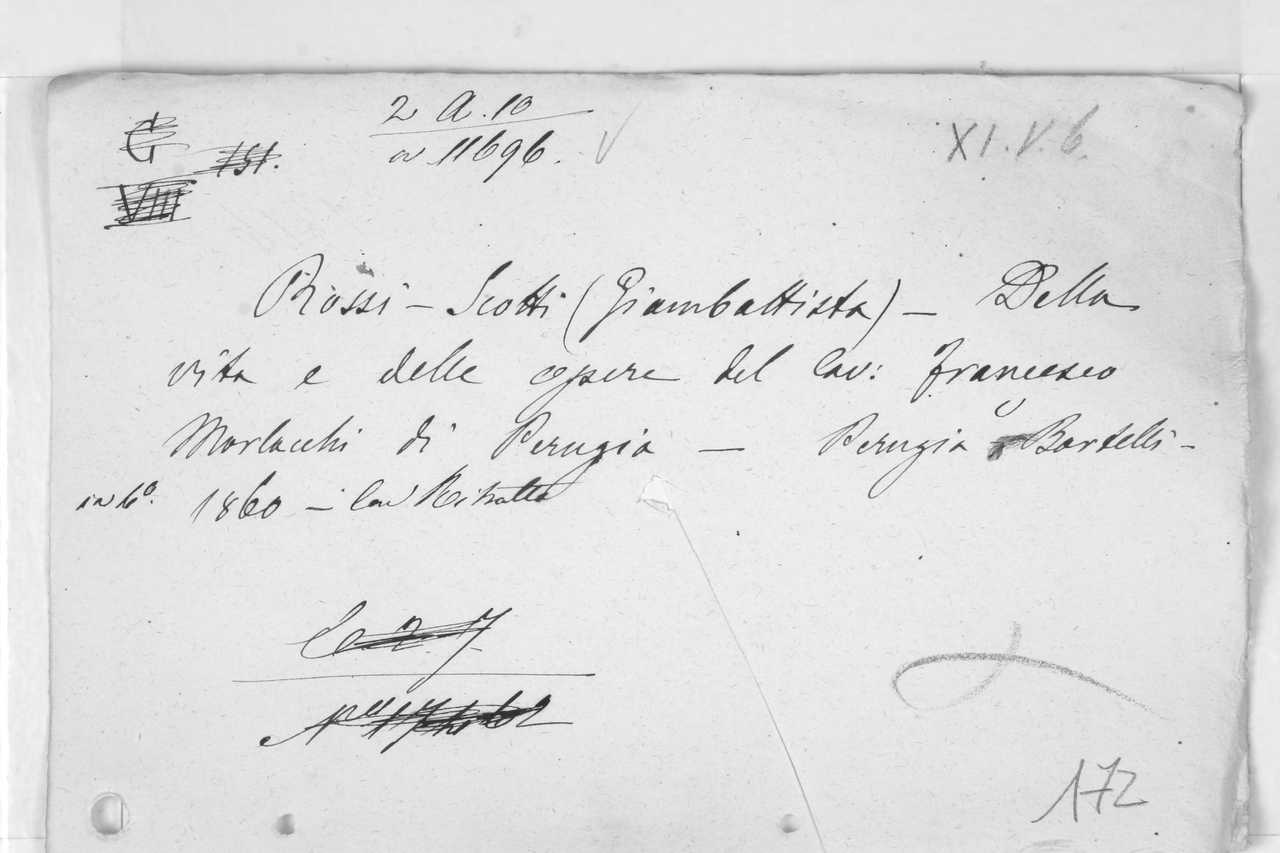 2 A. 10
n 11696.
XI. V. 6.
G
VIII
151.
Rossi - Scotti (Giambattista) - Della
vita e delle opere del Cav: Francesco
Morlacchi di Perugia - Perugia Bartelli -
in 4º. 1860 - Con Ritratto
172